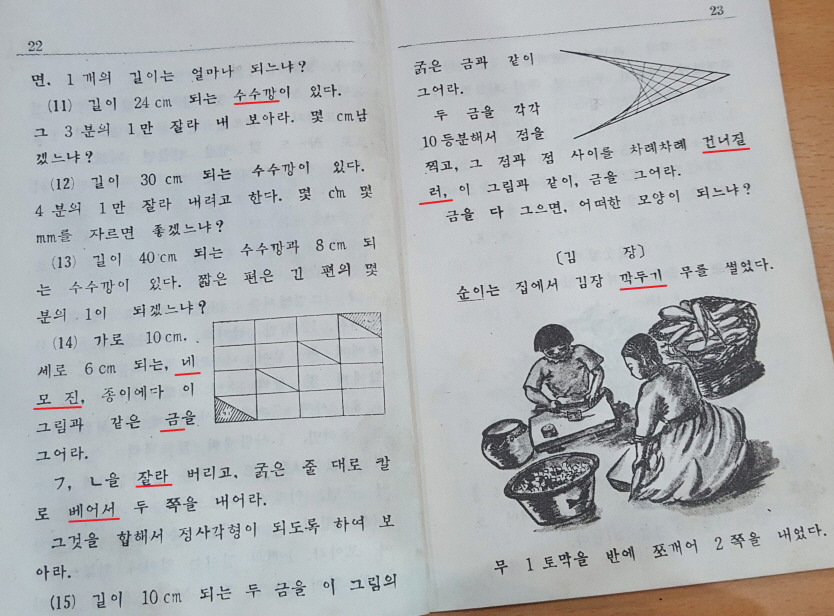 22
면, 1 개의 길이는 얼마나 되느냐?
(11) 길이 24 cm 되는 수수깡이 있다.
그 3 분의 1만 잘라 내 보아라. 몇 cm남
겠느냐?
(12) 길이 30 cm 되는 수수깡이 있다.
4 분의 1만 잘라 내려고 한다. 몇 cm 몇
mm를 자르면 좋겠느냐?
(13) 길이 40 cm 되는 수수깡과 8 cm 되
는 수수깡이 있다. 짧은 편은 긴 편의 몇
분의 1이 되겠느냐?
(14) 가로 10 cm.
세로 6 cm 되는, 네
모 진, 종이에다 이
그림과 같은 금을
그어라.
ㄱ, ㄴ을 잘라 버리고, 굵은 줄 대로 칼
로 베어서 두 쪽을 내어라.
그것을 합해서 정사각형이 되도록 하여 보
아라.
(15) 길이 10 cm 되는 두 금을 이 그림의
23
굵은 금과 같이
그어라.
두 금을 각각
10 등분해서 점을
찍고, 그 점과 점 사이를 차례차례 건너질
러, 이 그림과 같이, 금을 그어라.
금을 다 그으면, 어떠한 모양이 되느냐?
〔김 장〕
순이는 집에서 김장 깍두기 무를 썰었다.
무 1 토막을 반에 쪼개어 2 쪽을 내었다.